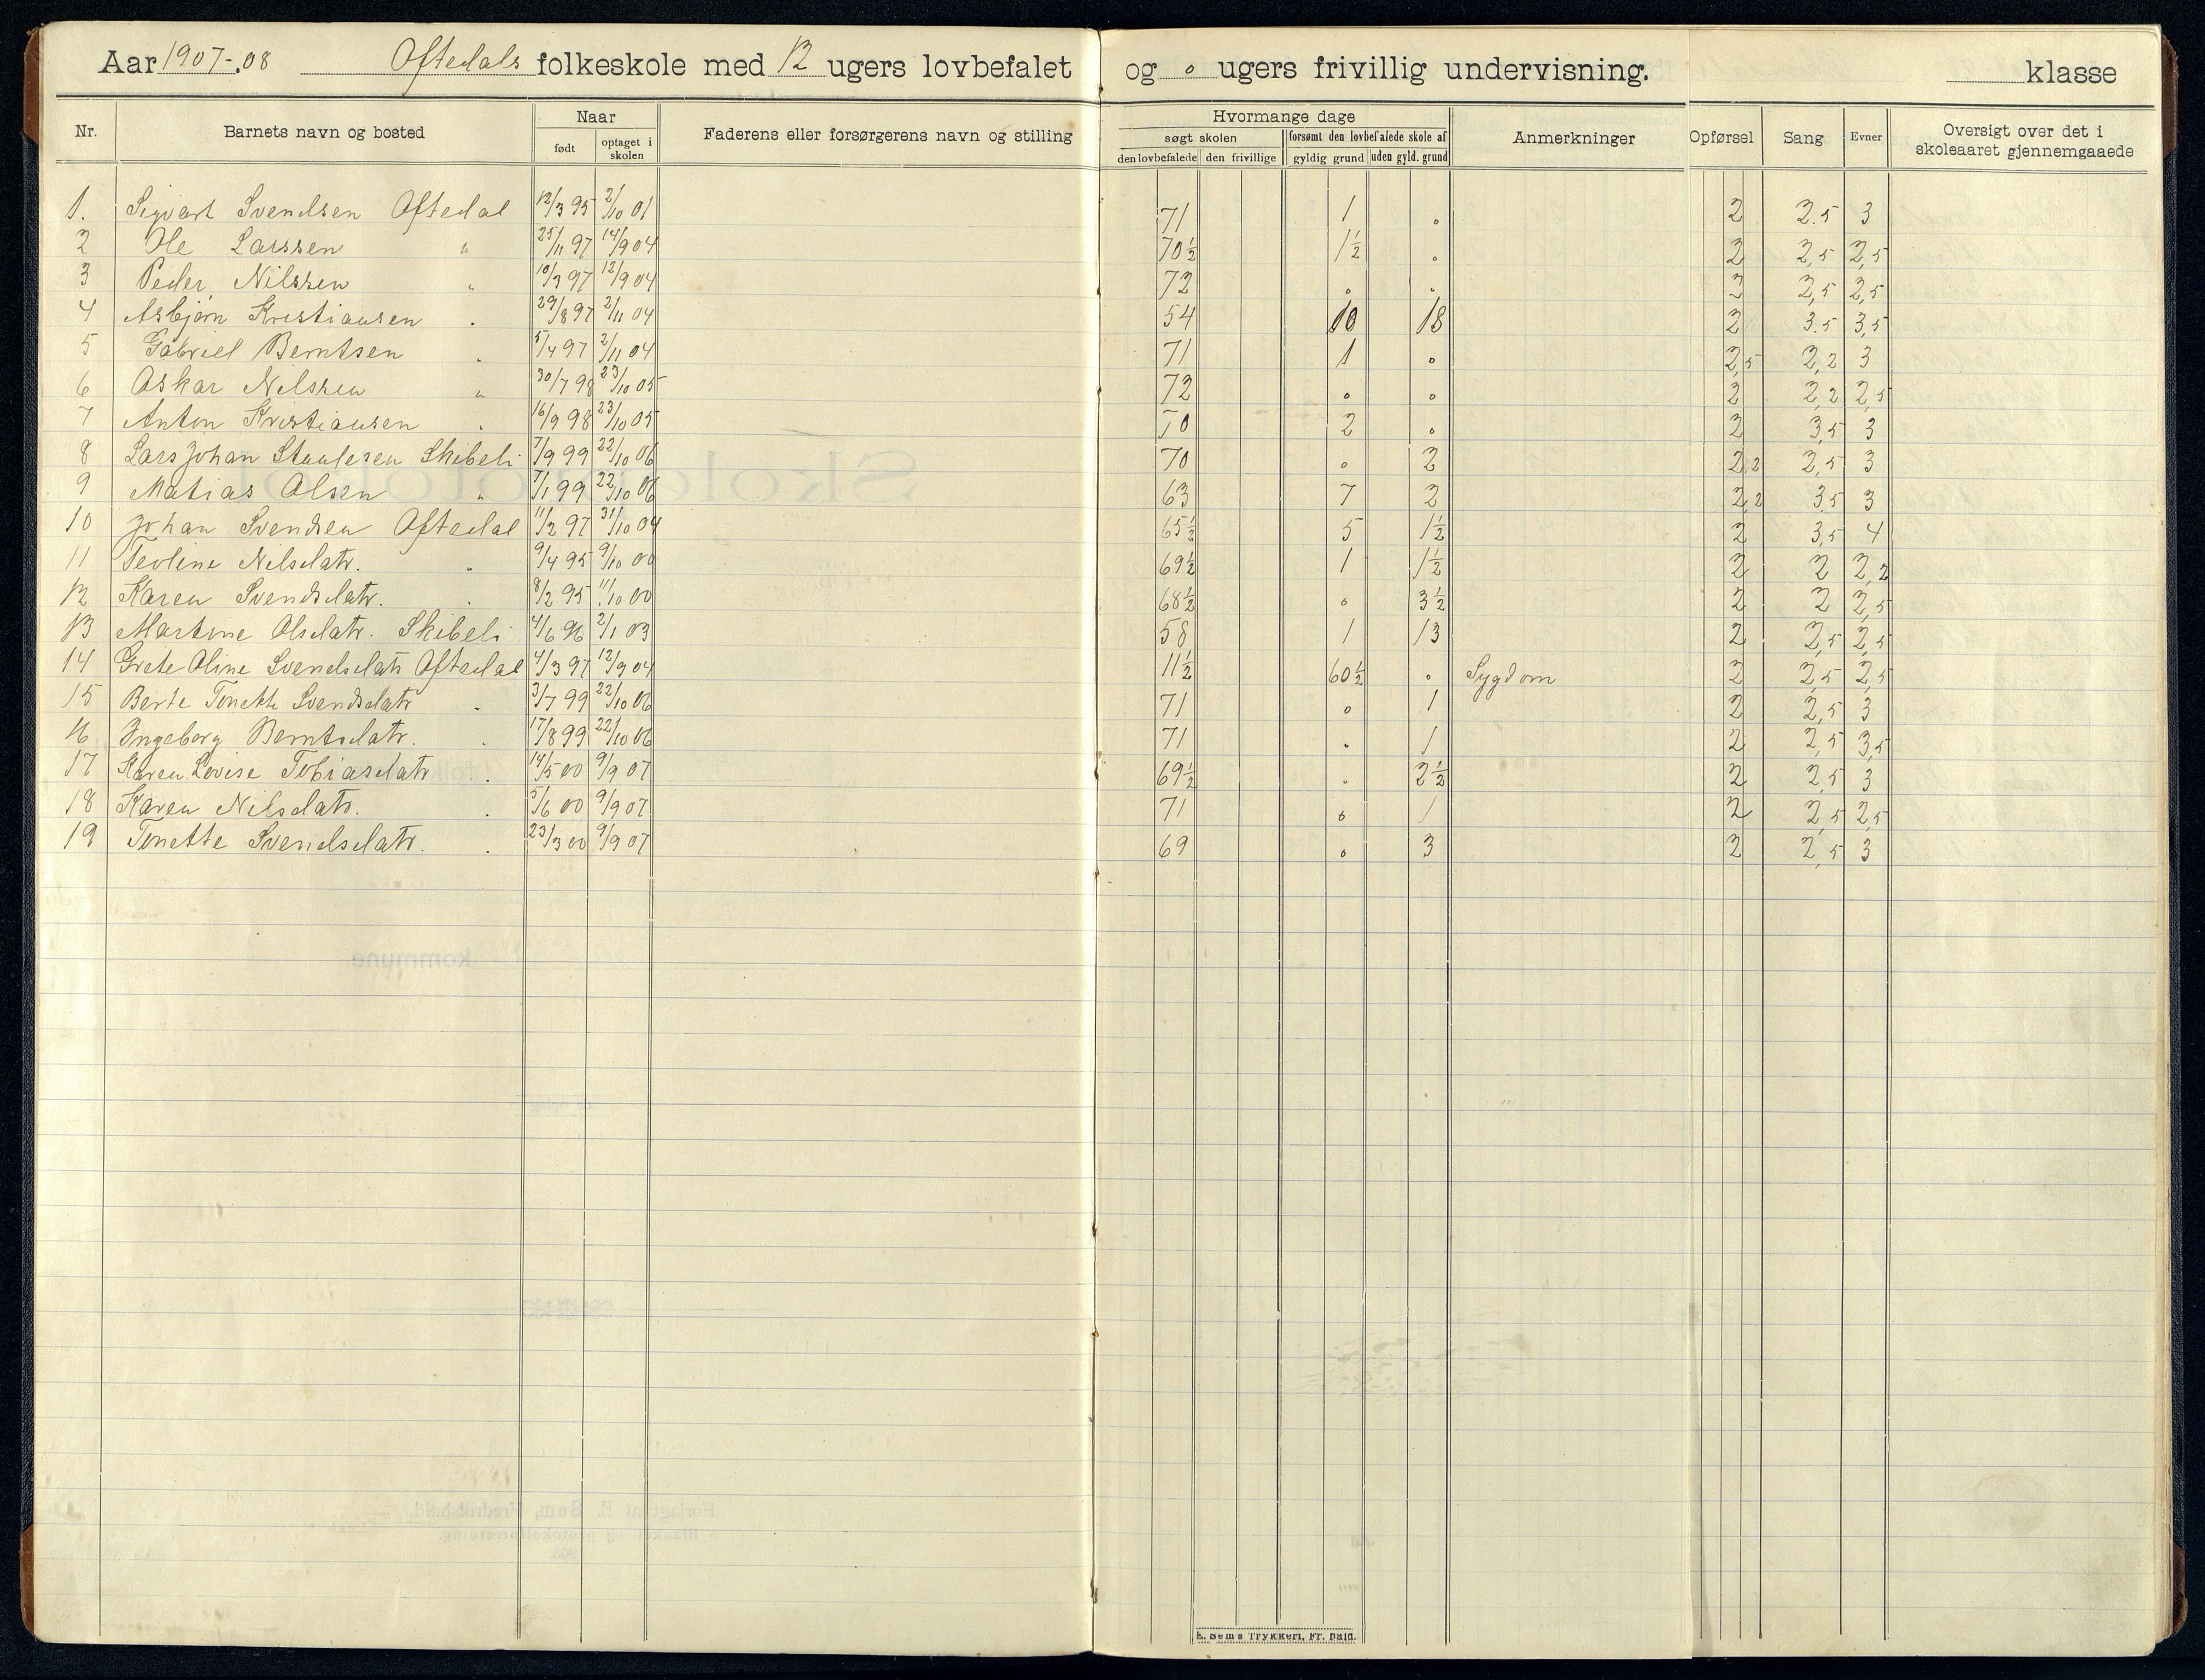 Aar 1907-.08 Oftedals folkeskole med 12 ugers lovbefalet og 0 ugers frivillig undervisning. klasse
Nr. Barnets navn og bosted Naar født optaget i skolen Faderens eller forsørgerens navn og stilling Hvormange dage søgt skolen den lovbefalede den frivillige forsømt den lovbefalede skole af gyldig grund uden gyld. grund Anmerkninger Opførsel Sang Evner Oversigt over det i skoleaaret gjennemgaaede
1. Sigvart Svendsen Oftedal 12/3 95 2/10 01 71 1 0 2 2.5 3
2 Ole Larssen " 25/11 97 14/9 04 70½ 1½ 0 2 2,5 2,5
3 Peder Nilssen " 10/3 97 12/9 04 72 0 0 2 2,5 2,5
4 Asbjørn Kristiansen " 29/8 97 2/11 04 54 10 18 2 3.5 3,5
5 Gabriel Berntsen " 5/4 97 2/11 04 71 1 0 2,5 2,2 3
6 Oskar Nilssen " 30/7 98 23/10 05 72 0 0 2 2,2 2,5
7 Anton Kristiansen " 16/9 98 23/10 05 70 2 0 2 3,5 3
8 Lars Johan Skibeli 7/9 99 22/10 06 70 0 2 2,2 2,5 3
9 Matias Olsen " 7/1 99 22/10 06 63 7 2 2,2 3.5 3
10 Johan Svendsen Oftedal 11/2 97 31/10 04 65½ 5 1½ 2 3,5 4
11 Teoline Nilsdatr. " 9/4 95 9/10 00 69½ 1 1½ 2 2 2,2
12 Karen Svendsdatr. " 8/2 95 11/10 00 68½ 0 3½ 2 2 2,5
13 Martine Olsdatr. Skibeli 4/6 96 2/1 03 58 1 13 2 2,5 2,5
14 Grete Oline Svendsdatr Oftedal 4/3 97 12/9 04 11½ 60½ 0 Sygdom 2 2,5 2,5
15 Berte Tonette Svendsdatr " 3/7 99 22/10 06 71 0 1 2 2,5 3
16 Ingeborg Berntsdatr. " 17/8 99 22/10 06 71 0 1 2 2,5 3,5
17 Karen Lovise Tobiasdatr " 14/5 00 9/9 07 69½ 0 2½ 2 2,5 3
18 Karen Nilsdatr. " 5/6 00 9/9 07 71 0 1 2 2,5 2,5
19 Tonette Svendsdatr. " 23/3 00 9/9 07 69 0 3 2 2,5 3
E. Sem's Trykkeri, Fr. hald.